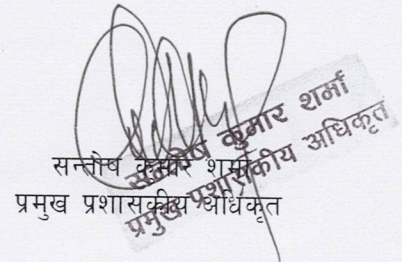 सन्तोष कुमार शर्मा
प्रमुख प्रशासकीय अधिकृत
सन्तोष कुमार शर्मा
प्रमुख प्रशासकीय अधिकृत